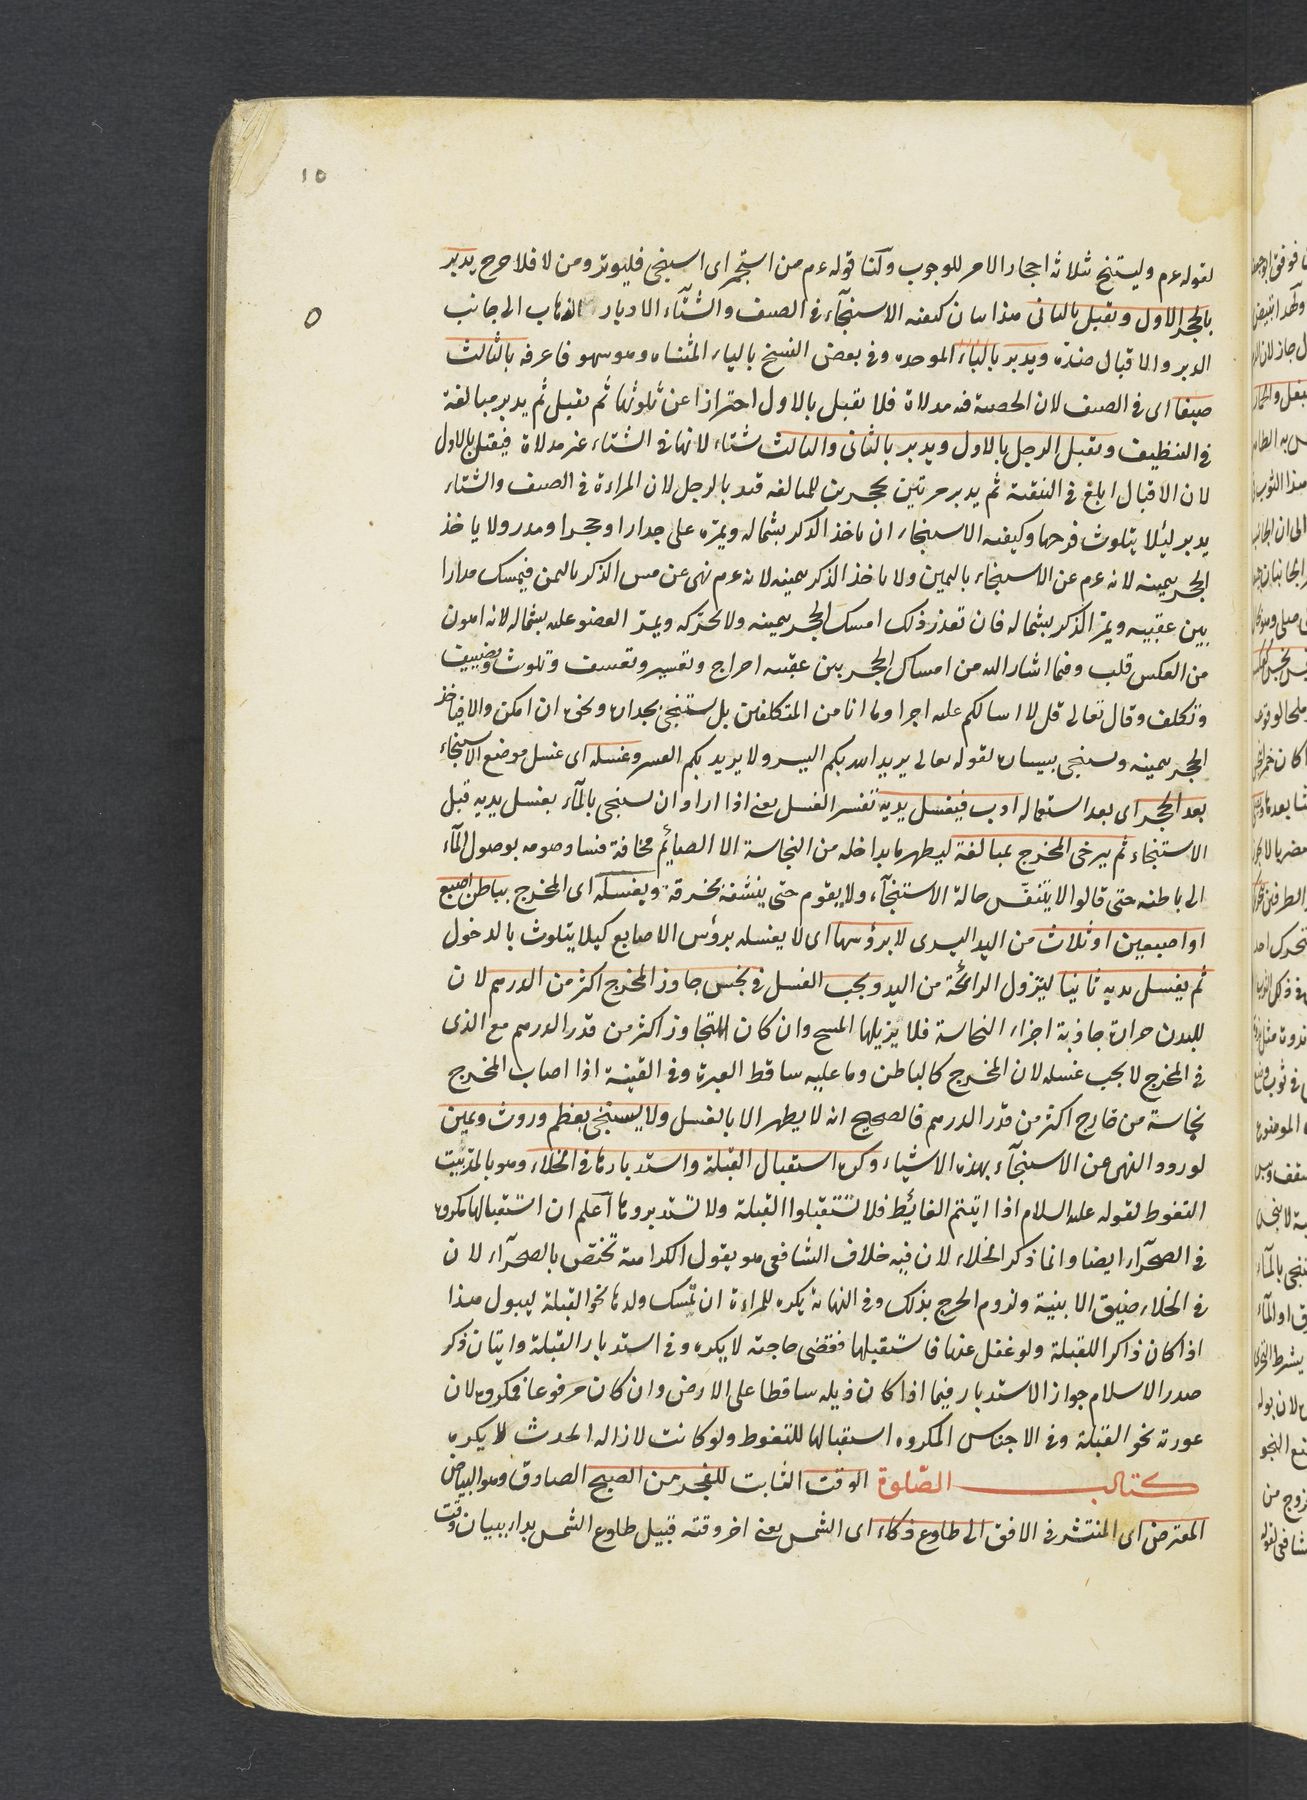 ١٥
لقوله عم وليستنج بثلاثة احجار الامر للوجوب ولنا قوله عم من استجمر اى استنجى فليوتر ومن لا فلا حرج يدبر
بالحجر الاول ويقبل بالثانى هذا بيان كيفية الاستنجآء فى الصيف والشتآء الادبار الذهاب الى جانب
الدبر والاقبال ضده ويدبر بالباء الموحدة وفى بعض النسخ بالياء المثناه وهو سهو فاعرفه بالثالث
صيفا اى فى الصيف لان الخصية فيه مدلاة فلا يقبل بالاول احترازا عن تلوثها ثم يقبل ثم يدبر مبالغة
فى التنظيف ويقبل الرجل بالاول ويدبر بالثانى والثالث شتاء لانها فى الشتاء غير مدلاة فيقبل بالاول
لان الاقبال ابلغ فى التنقية ثم يدبر مرتين بحجرين للمبالغة قيد بالرجل لان المراءة فى الصيف والشتاء
يدبر لئلا يتلوث فرجها وكيفية الاستنجاء ان ياخذ الذكر بشماله ويمره على جدار او حجر او مدر ولا ياخذ
الحجر بيمينه لانه عم عن الاستنجاء باليمين ولا ياخذ الذكر بيمينه لانه عم نهى عن مس الذكر باليمن فيمسك مدارا
بين عقبيه ويمر الذكر بشماله فان تعذر ذلك امسك الحجر بيمينه ولا يحركه ويمر العضو عليه بشماله لانه اهون
من العكس قلب وفيما اشار اليه من امساك الحجر بين عقبيه احراج وتعسير وتعسف وتلوث وتضييف
وتكلف وقال تعالى قل لا اسالكم عليه اجرا وما انا من المتكلفين بل يستنجى بجدار ونحوه ان امكن والا فياخذ
الحجر بيمينه ويستنجى بيساره لقوله تعالى يريد الله بكم اليسر ولا يريد بكم العسر وغسله اى غسل موضع الاستنجاء
بعد الحجر اى بعد استعماله ادب فيغسل يديه تفسير الغسل يعنى اذا اراد ان يستنجى بالمآء يغسل يديه قبل
الاستنجاء ثم يرخى المخرج بمبالغة ليطهر ما يداخله من النجاسة الا الصائم مخافة فساد صومه بوصول المآء
الى باطنه حتى قالوا لا يتنفس حالة الاستنجآء ولا يقوم حتى ينشفه بخرقة ويغسله اى المخرج بباطن اصبع
او اصبعين او ثلاث من اليد اليسرى لا برؤسها اى لا يغسله برؤس الاصابع كيلا يتلوث بالدخول
ثم يغسل يديه ثانيا ليزول الرائحة من اليد ويجب الغسل فى نجس جاوز المخرج اكثر من الدرهم لان
للبدن حرارة جاذبة اجزاء النجاسة فلا يزيلها المسح وان كان المتجاوز اكثر من قدر الدرهم مع الذى
فى المخرج لا يجب غسله لان المخرج كالباطن وما عليه ساقط العبرة وفى القنية اذا اصاب المخرج
نجاسة من خارج اكثر من قدر الدرهم فالصحيح انه لا يطهر الا بالغسل ولا يستنجى بعظم وروث ويمين
لورود النهى عن الاستنجآء بهذه الاشياء وكره استقبال القبلة واستدبارها فى الخلاء وهو بالمد بيت
التغوط لقوله عليه السلام اذا اتيتم الغائيط فلا تستقبلوا القبلة ولا تستدبروها اعلم ان استقبالها مكروه
فى الصحرآء ايضا وانما ذكر الخلاء لان فيه خلاف الشافعى هو يقول الكراهة تختص بالصحرآء لان
فى الخلاء ضيق الابنية ولزوم الحرج بذلك وفى النهاية يكره للمراءة ان تمسك ولدها نحو القبلة ليبول هذا
اذا كان ذاكرا للقبلة ولو غفل عنها فاستقبلها فقضى حاجته لا يكره وفى استدبار القبلة وايتان ذكر
صدر الاسلام جواز الاستدبار فيما اذا كان ذيله ساقطا على الارض وان كان مرفوعا فمكروه لان
عورته نحو القبلة وفى الاجناس المكروه استقبالها للتغوط ولو كانت لازاله الحدث لا يكره
كتاب الصلوة الوقت الثابت للفجر من الصبح الصادق وهو البياض
المعترض اى المنتشر فى الافق الى طلوع ذكاء اى الشمس يعنى اخر وقته قبيل طلوع الشمس بداء ببيان وقت